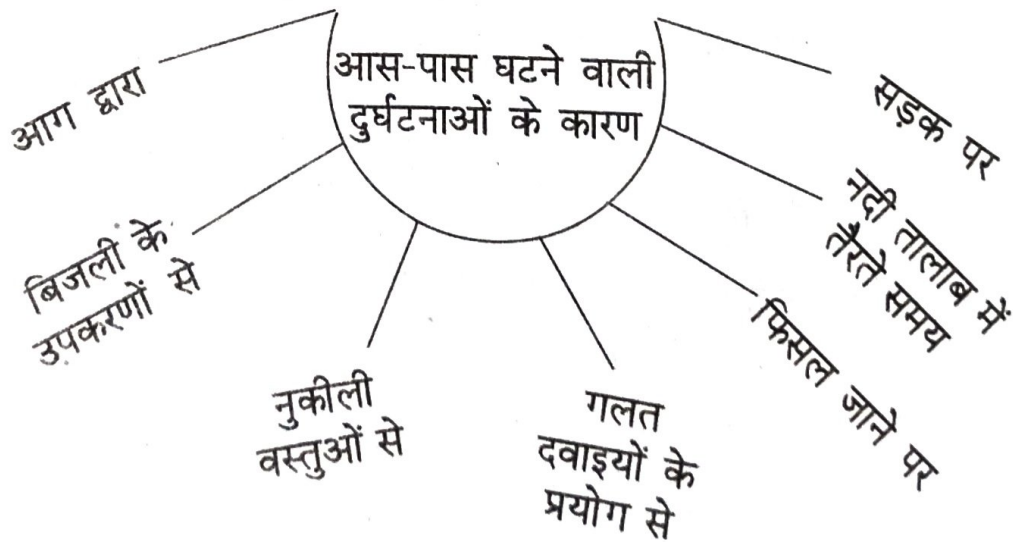 आस-पास घटने वाली
दुर्घटनाओं के कारण
आग द्वारा
बिजली के
उपकरणों से
नुकीली
वस्तुओं से
गलत
दवाइयों के
प्रयोग से
फिसल जाने पर
नदी तालाब में
तैरते समय
सड़क पर